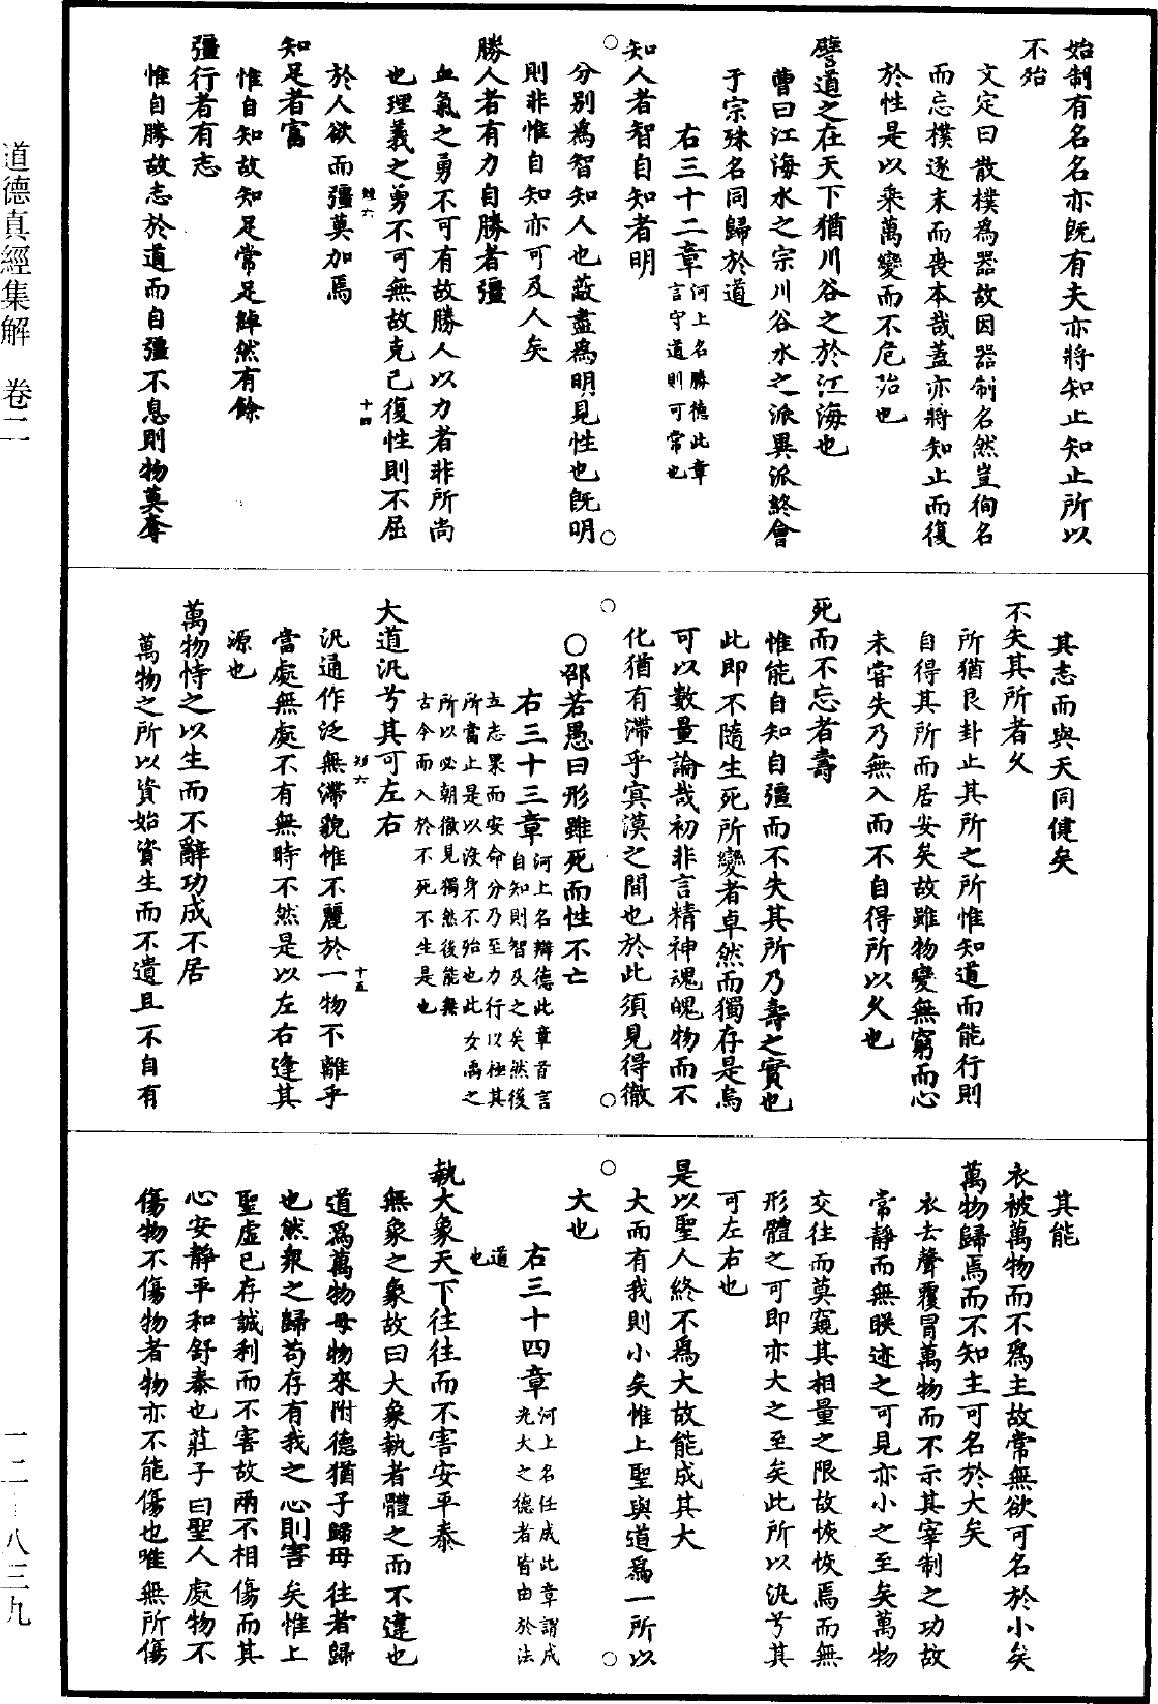 始制有名名亦旣有夫亦將知止知止所以
不殆
文定曰散樸爲器故因器制名然豈徇名
而忘樸逐末而喪本哉蓋亦將知止而復
於性是以乘萬變而不危殆也
譬道之在天下猶川谷之於江海也
曹曰江海水之宗川谷水之派異派終會
于宗殊名同歸於道
右三十二章河上名勝德此章
言守道則可常也
知人者智自知者明
分別爲智知人也蔽盡爲明見性也旣明
則非惟自知亦可及人矣
勝人者有力自勝者彊
血氣之勇不可有故勝人以力者非所尚
也理義之勇不可無故克己復性則不屈
十四
於人欲而彊莫加焉
知足者富
惟自知故知足常足綽然有餘
彊行者有志
惟自勝故志於道而自彊不息則物莫奪
其志而與天同健矣
不失其所者久
所猶艮卦止其所之所惟知道而能行則
自得其所而居安矣故雖物變無窮而心
未甞失乃無入而不自得所以久也
死而不忘者壽
惟能自知自彊而不失其所乃壽之實也
此即不隨生死所變者卓然而獨存是烏
可以數量論哉初非言精神魂魄物而不
化猶有滯乎寞漠之間也於此須見得徹
○邵若愚曰形雖死而性不亡
右三十三章河上名辯德此章首言
自知則智及之矣然後
立志果而安命分乃至力行以極其
所當止是以沒身不殆也此女禹之
所以必朝徹見獨然後能無
古今而入於不死不生是也
大道汎兮其可左右
汎通作泛無滯貌惟不麗於一物不離乎
十五
當處無處不有無時不然是以左右逢其
源也
萬物恃之以生而不辭功成不居
萬物之所以資始資生而不遺且不自有
其能
衣被萬物而不爲主故常無欲可名於小矣
萬物歸焉而不知主可名於大矣
衣去聲覆冒萬物而不示其宰制之功故
常靜而無眹迹之可見亦小之至矣萬物
交往而莫窺其相量之限故恢恢焉而無
形體之可即亦大之至矣此所以汎兮其
可左右也
是以聖人終不爲大故能成其大
大而有我則小矣惟上聖與道爲一所以
大也
右三十四章河上名任成此章謂成
光大之德者皆由於法
道
也
執大象天下往往而不害安平泰
無象之象故曰大象執者體之而不違也
道爲萬物母物來附德猶子歸母往者歸
也然衆之歸苟存有我之心則害矣惟上
聖虛己存誠利而不害故兩不相傷而其
心安靜平和舒泰也莊子曰聖人處物不
傷物不傷物者物亦不能傷也唯無所傷
道德真經集解　卷二
一二—八三九